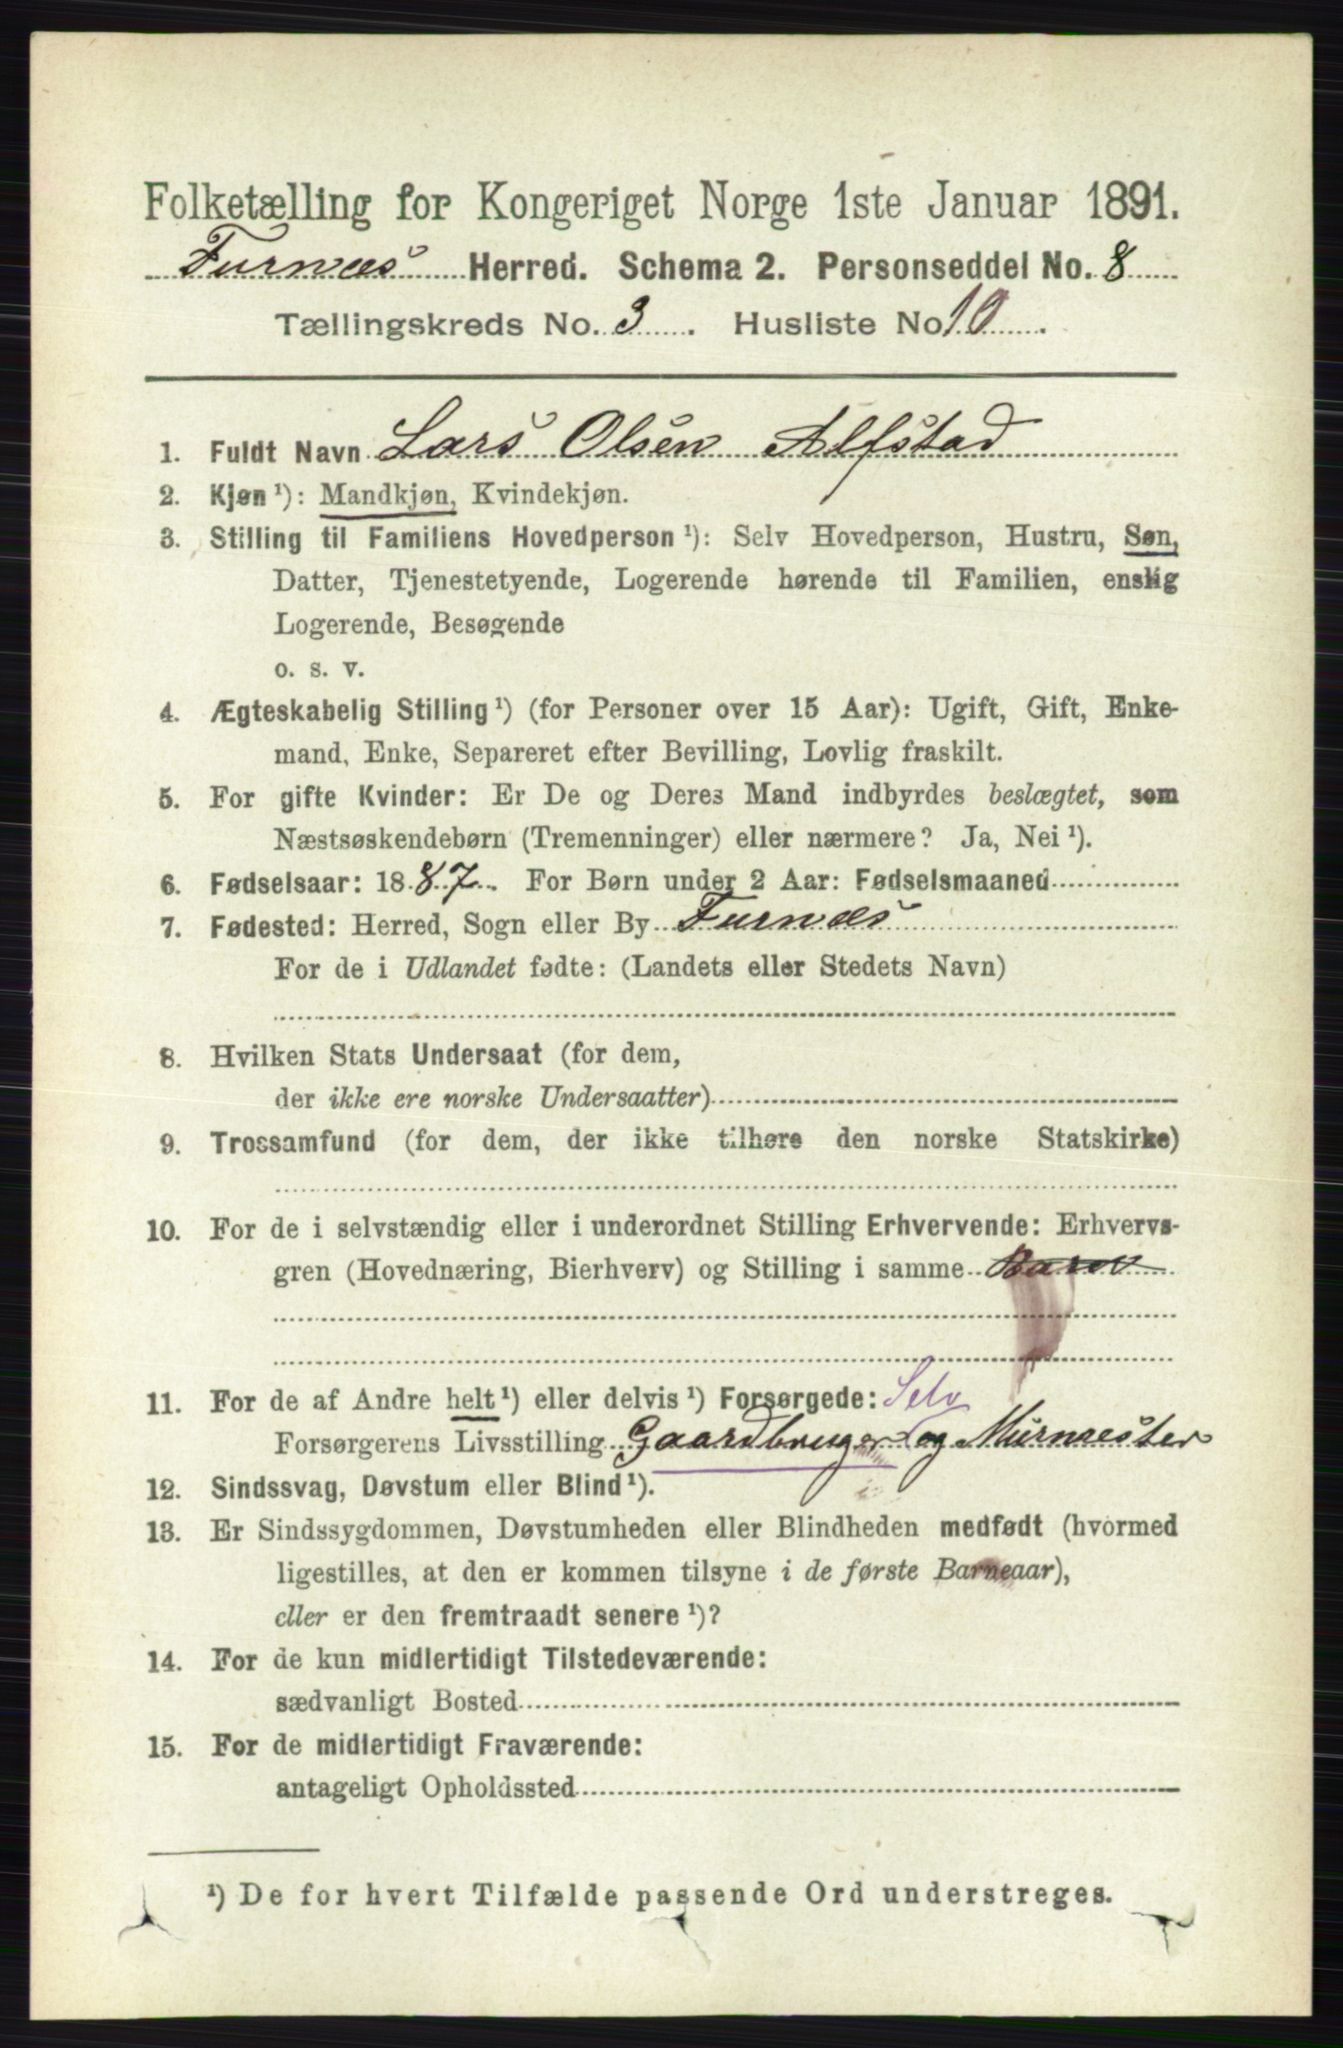 Folketælling for Kongeriget Norge 1ste Januar 1891.
Furnæs Herred. Schema 2. Personseddel No. 8
Tællingskreds No. 3. Husliste No 10.
1. Fuldt Navn Lars Olsen Alfstad
2. Kjøn ¹): Mandkjøn, Kvindekjøn.
3. Stilling til Familiens Hovedperson ¹): Selv Hovedperson, Hustru, Søn,
Datter, Tjenestetyende, Logerende hørende til Familien, enslig
Logerende, Besøgende
o. s. v.
4. Ægteskabelig Stilling ¹) (for Personer over 15 Aar): Ugift, Gift, Enke-
mand, Enke, Separeret efter Bevilling, Lovlig fraskilt.
5. For gifte Kvinder: Er De og Deres Mand indbyrdes beslægtet, som
Næstsøskendebørn (Tremenninger) eller nærmere? Ja, Nei ¹).
6. Fødselsaar: 1887. For Børn under 2 Aar: Fødselsmaaned
7. Fødested: Herred, Sogn eller By Furnæs
For de i Udlandet fødte: (Landets eller Stedets Navn)
8. Hvilken Stats Undersaat (for dem,
der ikke ere norske Undersaatter)
9. Trossamfund (for dem, der ikke tilhøre den norske Statskirke)
10. For de i selvstændig eller i underordnet Stilling Erhvervende: Erhvervs-
gren (Hovednæring, Bierhverv) og Stilling i samme Barn
11. For de af Andre helt ¹) eller delvis ¹) Forsørgede: Selv
Forsørgerens Livsstilling Gaardbruger og Murmester
12. Sindssvag, Døvstum eller Blind ¹).
13. Er Sindssygdommen, Døvstumheden eller Blindheden medfødt (hvormed
ligestilles, at den er kommen tilsyne i de første Barneaar),
eller er den fremtraadt senere ¹)?
14. For de kun midlertidigt Tilstedeværende:
sædvanligt Bosted
15. For de midlertidigt Fraværende:
antageligt Opholdssted
¹) De for hvert Tilfælde passende Ord understreges.